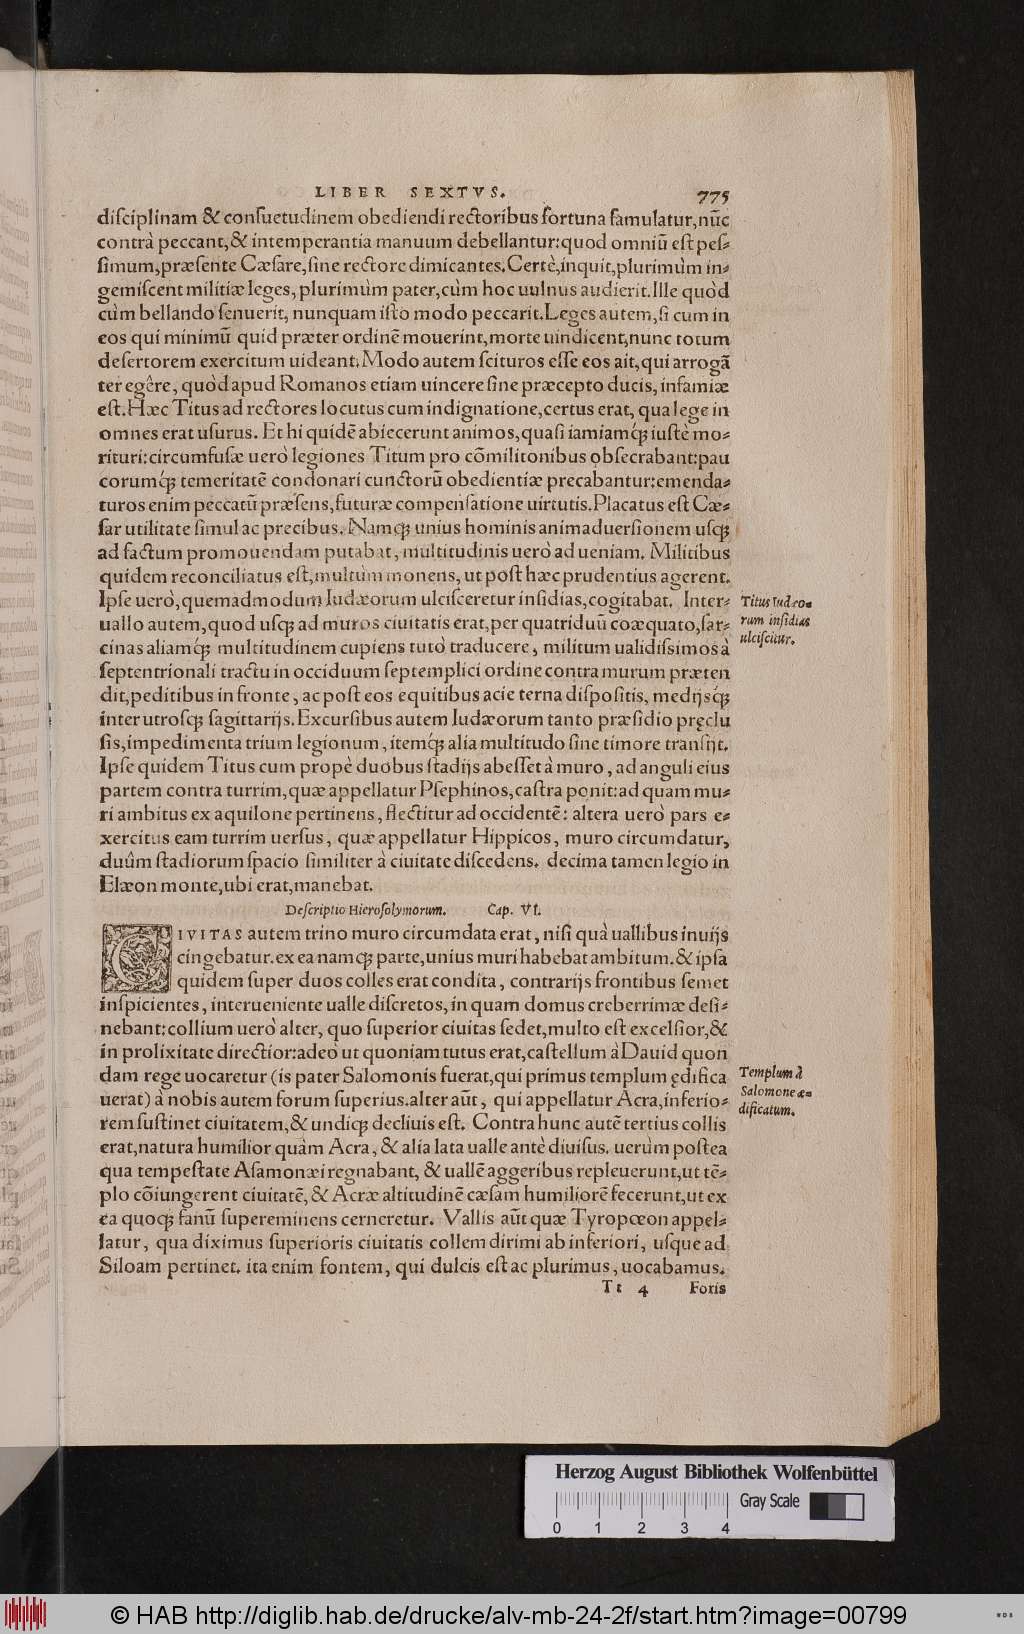 LIBER SEXTVS. 775
diſciplinam & conſuetudinem obediendi rectoribus fortuna famulatur, nūc
contrà peccant, & intemperantia manuum debellantur: quod omniū eſt peſ-
ſimum, præſente Cæſare, ſine rectore dimicantes. Certè, inquit, plurimùm in-
gemiſcent militiæ leges, plurimùm pater, cùm hoc uulnus audierit. Ille quòd
cùm bellando ſenuerit, nunquam iſto modo peccarit. Leges autem, ſi cum in
eos qui minimū quid præter ordinē mouerint, morte uindicent, nunc totum
deſertorem exercitum uideant. Modo autem ſcituros eſſe eos ait, qui arrogã
ter egêre, quòd apud Romanos etiam uincere ſine præcepto ducis, infamiæ
eſt. Hæc Titus ad rectores locutus cum indignatione, certus erat, qua lege in
omnes erat uſurus. Et hi quidē abiecerunt animos, quaſi iamiamq́; iuſtè mo-
rituri: circumfuſæ uerò legiones Titum pro cõmilitonibus obſecrabant: pau
corumq́; temeritatē condonari cunctorū obedientiæ precabantur: emenda-
turos enim peccatū præſens, futuræ compenſatione uirtutis. Placatus eſt Cæ-
ſar utilitate ſimul ac precibus. Namq; unius hominis animaduerſionem uſq;
ad factum promouendam putabat, multitudinis uerò ad ueniam. Militibus
quidem reconciliatus eſt, multùm monens, ut poſt hæc prudentius agerent.
Ipſe uerò, quemadmodum Iudæorum ulciſceretur inſidias, cogitabat. Inter-
uallo autem, quod uſq; ad muros ciuitatis erat, per quatriduū coæquato, ſar-
cinas aliamq́; multitudinem cupiens tutò traducere, militum ualidiſsimos à
ſeptentrionali tractu in occiduum ſeptemplici ordine contra murum præten
dit, peditibus in fronte, ac poſt eos equitibus acie terna diſpoſitis, medijsq́;
inter utroſq; ſagittarijs. Excurſibus autem Iudæorum tanto præſidio pręclu
ſis, impedimenta trium legionum, itemq́; alia multitudo ſine timore tranſijt.
Ipſe quidem Titus cum propè duobus ſtadijs abeſſet à muro, ad anguli eius
partem contra turrim, quæ appellatur Pſephinos, caſtra ponit: ad quam mu-
ri ambitus ex aquilone pertinens, flectitur ad occidentē: altera uerò pars e-
xercitus eam turrim uerſus, quæ appellatur Hippicos, muro circumdatur,
duûm ſtadiorum ſpacio ſimiliter à ciuitate diſcedens. decima tamen legio in
Elæon monte, ubi erat, manebat.
Titus Iudæo-
rum inſidias
ulciſcitur.
Deſcriptio Hieroſolymorum. Cap. VI.
CIVITAS autem trino muro circumdata erat, niſi quà uallibus inuijs
cingebatur. ex ea namq; parte, unius muri habebat ambitum. & ipſa
quidem ſuper duos colles erat condita, contrarijs frontibus ſemet
inſpicientes, interueniente ualle diſcretos, in quam domus creberrimæ deſi-
nebant: collium uerò alter, quo ſuperior ciuitas ſedet, multo eſt excelſior, &
in prolixitate directior: adeò ut quoniam tutus erat, caſtellum à Dauid quon
dam rege uocaretur (is pater Salomonis fuerat, qui primus templum ędifica
uerat) à nobis autem forum ſuperius. alter aūt, qui appellatur Acra, inferio-
rem ſuſtinet ciuitatem, & undiq; decliuis eſt. Contra hunc autē tertius collis
erat, natura humilior quàm Acra, & alia lata ualle antè diuiſus. uerùm poſtea
qua tempeſtate Aſamonæi regnabant, & uallē aggeribus repleuerunt, ut tē-
plo cõiungerent ciuitatē, & Acræ altitudinē cæſam humiliorē fecerunt, ut ex
ea quoq; fanū ſupereminens cerneretur. Vallis aūt quæ Tyropœon appel-
latur, qua diximus ſuperioris ciuitatis collem dirimi ab inferiori, uſque ad
Siloam pertinet. ita enim fontem, qui dulcis eſt ac plurimus, uocabamus.
Templum à
Salomone æ-
dificatum.
Tt 4 Foris
Herzog August Bibliothek Wolfenbüttel
Gray Scale
0 1 2 3 4
© HAB http://diglib.hab.de/drucke/alv-mb-24-2f/start.htm?image=00799